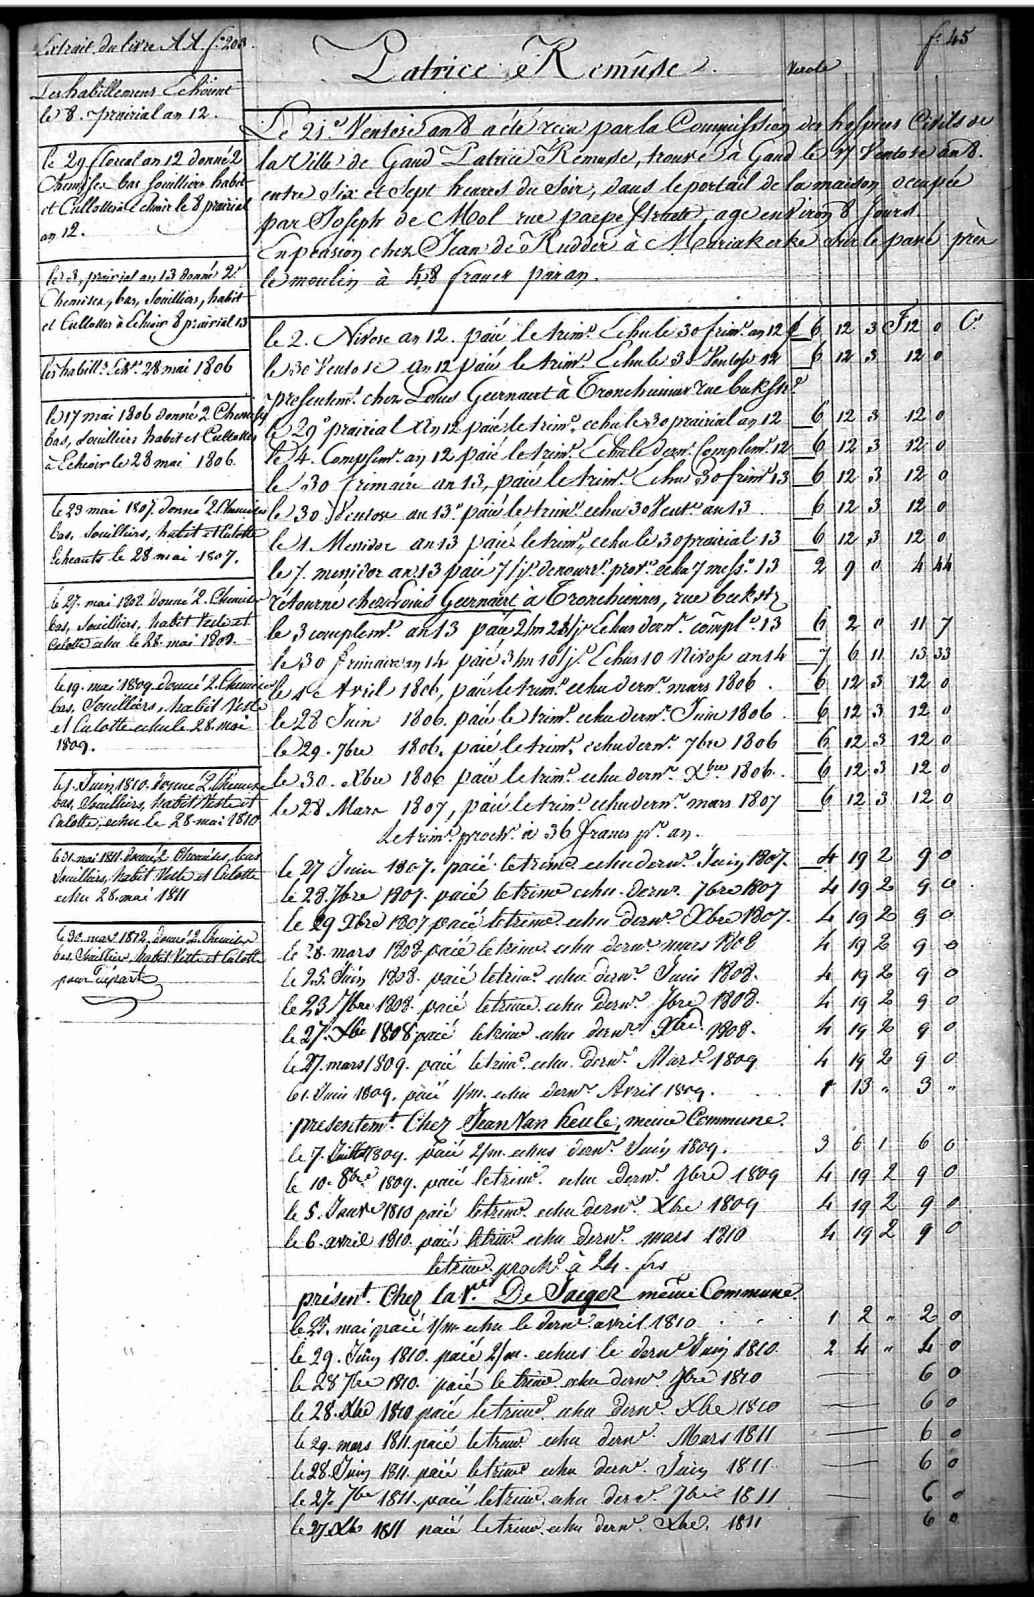 Extrait du livre AA f° 200.
Les habillemens Echoient
le 8. prairial an 12.
le 29 floreal an 12 donné 2
Chemises bas souilliers habit
et Cullotte a echoir le 8 prairial
an 12.
le 3. prairial an 13 donné 2
Chemises, bas, souilliers, habit
et Cullottes à Echoir 8 prairial 13
les habill.s Ech.s 28 mai 1806
le 17 mai 1806 donné 2 Chemises
bas, souilliers habit et Cullottes
à Echoir le 28 mai 1806.
le 23 mai 1807 donné 2 Chemises
bas, souilliers, habit et Culotte
echeants le 28 mai 1807.
le 27. mai 1808 donné 2. Chemises
bas, souilliers, habit veste et
Culotte echu le 28 mai 1808.
le 19. mai 1809 donné 2 Chemises
bas, Souilliers, habit Veste
et Culotte echu le 28. mai
1809.
le 1. Juin 1810. donné 2 Chemises
bas, Souilliers, habit Veste et
Culotte, echu le 28 mai 1810
le 31 mai 1811 donné 2 Chemises, bas
souilliers, habit Veste et Culotte
echu 28. mai 1811
le 30 mars 1812, donné 2 Chemises
bas Souilliers, habit Veste et Culotte
pour départ
f° 45
Patrice Remuse.
Le 21e Ventose an 8 a été reçu par la Commission des hospices Civils de
la Ville de Gand Patrice Remuse, trouvé à Gand le 17 Ventose an 8.
entre Six et Sept heures du Soir, dans le portail de la maison occupée
par Joseph de Mol rue paepe straete, age environ 8 Jours.
En pension chez Jean de Rudder à Mariakerke sur le pavé près
le moulin à 48 francs par an.
le 2. Nivose an 12. paié le trim.e Echu le 30 frim.e an 12 6 12 3 F 12 0 C.s
le 30 Ventose an 12 paié le trim.e Echu le 30 Ventose 12 6 12 3 12 0
presentem.t chez Louis Geernaert à Tronchiennes rue beekst.
le 29 prairial an 12 paié le trim.e echu le 30 prairial an 12 6 12 3 12 0
le 4. Complem. an 12 paié le trim.e Echu le dern.r Complem.r 12 6 12 3 12 0
le 30 frimaire an 13, paié le trim.e Echu 30 frim.e 13 6 12 3 12 0
le 30 Ventose an 13 paié le trim.e echu 30 Vent.e an 13 6 12 3 12 0
le 1. Messidor an 13 paié le trim.e, echu le 30 prairial 13 6 12 3 12 0
le 7. messidor an 13 paié 7/j.s de nourr.e prov.e echu 7 mess.r 13 2 9 0 4 44
rétourné chez Louis Geernaert a Tronchiennes, rue beekst.
le 3 complem.r an 13 paié 2/m 23/j.s Echus dern.r compl.r 13 6 2 0 11 7
le 30 frimaire an 14 paié 3/m 10/j.s Echus 10 Nivose an 14 7 6 11 13 33
le 1e Avril 1806, paié le trim.e echu dern.r mars 1806 6 12 3 12 0
le 28 Juin 1806. paié le trim.e echu dern.r Juin 1806 6 12 3 12 0
le 29. 7bre 1806. paié le trim.e echu dern.r 7bre 1806 6 12 3 12 0
le 30. Xbre 1806 paié le trim.e echu dern.r Xbre 1806. 6 12 3 12 0
le 28 Mars 1807, paié le trim.e echu dern.r mars 1807 6 12 3 12 0
Le trim.e proch.n à 36 francs p.r an.
le 27 Juin 1807. paié le trim.e echu dern.r Juin 1807. 4 19 2 9 0
le 28. 7bre 1807. paié le trim.e echu dern.r 7bre 1807 4 19 2 9 0
le 29 Xbre 1807 paié le trim.e echu dern.r Xbre 1807. 4 19 2 9 0
le 28. mars 1808 paié le trim.e echu dern.r mars 1808 4 19 2 9 0
le 25 Juin 1808. paié le trim.e echu dern.r Juin 1808. 4 19 2 9 0
le 23 7bre 1808. paié le trim.e echu dern.r 7bre 1808. 4 19 2 9 0
le 27. Xbre 1808 paié le trim.e echu dern.r Xbre. 1808. 4 19 2 9 0
le 27. mars 1809. paié le trim.e echu dern.r Mars 1809 4 19 2 9 0
le 1. Juin 1809. paié 1/m. echu dern.r Avril 1809. 1 13 " 3 "
presentem.t Chez Jean Van Keule, meme Commune.
le 7. Juillet 1809. paié 2/m. echus dern.r Juin 1809. 3 6 1 6 0
le 10. 8bre 1809. paié le trim.e echu dern.r 7bre 1809 4 19 2 9 0
le 5. Janv.r 1810 paié le trim.e echu dern.r Xbre 1809 4 19 2 9 0
le 6. avril 1810. paié le trim.e echu dern.r mars 1810 4 19 2 9 0
le trim.e proch.n à 24. frs
présent.t Chez la V.e De Jaeger même Commune.
le 25. mai paié 1/m. echu le dern.r avril 1810 1 2 " 2 0
le 29. Juin 1810. paié 2/m. echus le dern.r Juin 1810. 2 4 " 4 0
le 28 7bre 1810. paié le trim.e echu dern.r 7bre 1810 6 0
le 28. Xbre 1810 paié le trim.e echu dern.r Xbre 1810 6 0
le 29. mars 1811. paié le trim.e echu dern.r Mars 1811 6 0
le 28. Juin 1811. paié le trim.e echu dern.r Juin 1811. 6 0
le 27. 7bre 1811. paié le trim.e echu dern.r 7bre 1811 6 0
le 27. Xbre 1811 paié le trim.e echu dern.r Xbre. 1811 6 0